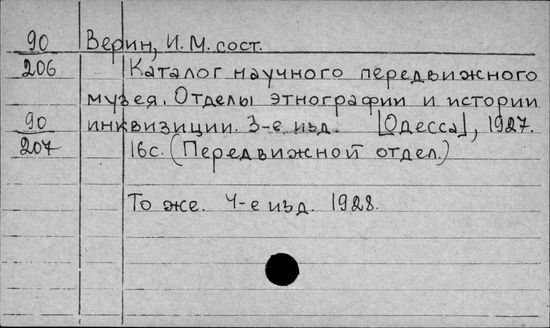 90 Верин, И. М. сост.
206 Каталог научного передвижного
музея. Отделы этнографии и истории
90 инквизиции. 3-е изд. [Одесса], 1927.
207 16с. (Передвижной отдел.)
То же. 4-е изд. 1928.